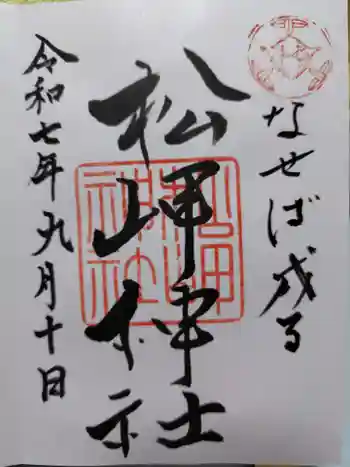 なせば成る
松岬神社
令和七年九月十日